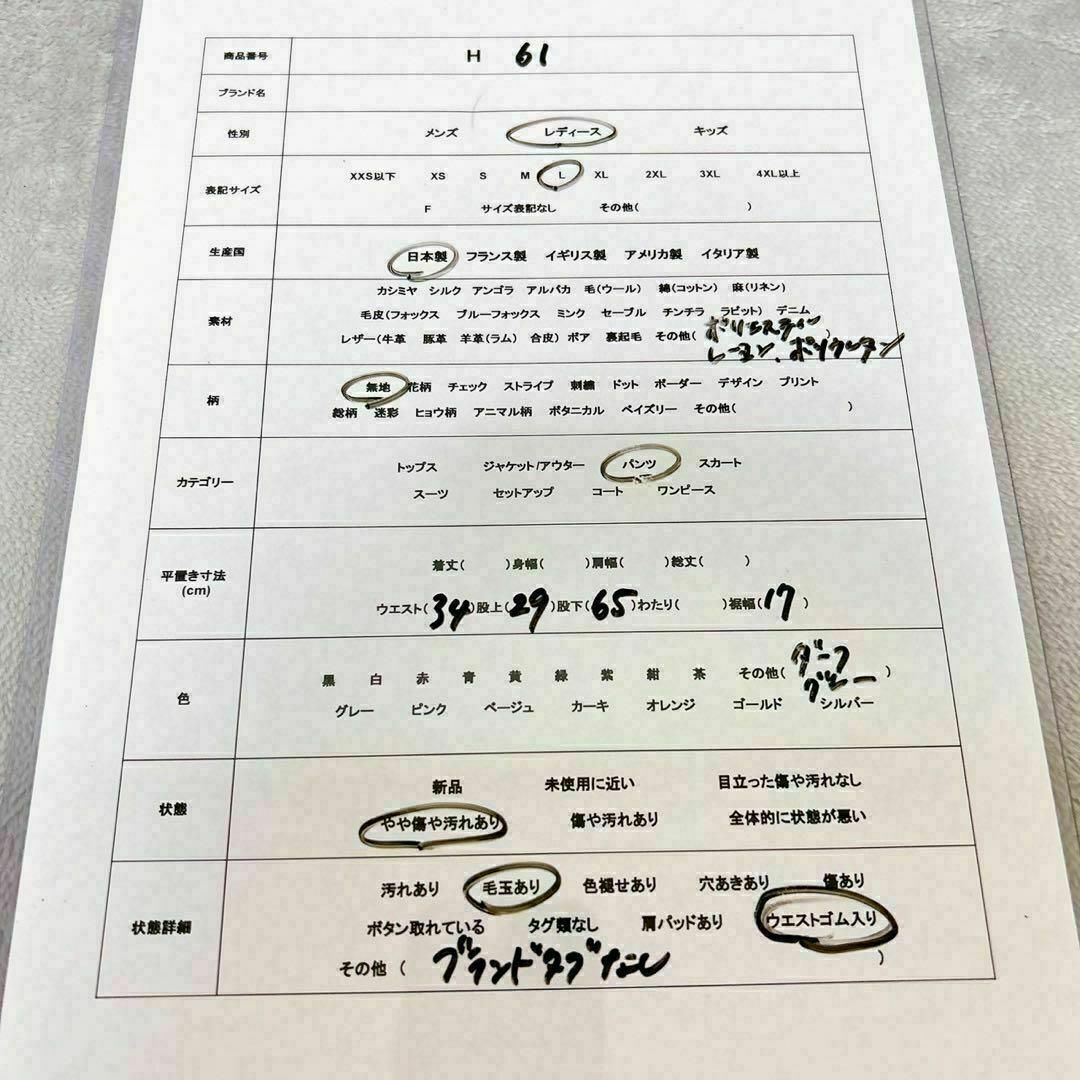 商品番号 H 61
ブランド名
性別 メンズ レディース キッズ
表記サイズ
XXS以下 XS S M L XL 2XL 3XL 4XL以上
F サイズ表記なし その他( )
生産国 日本製 フランス製 イギリス製 アメリカ製 イタリア製
素材
カシミヤ シルク アンゴラ アルパカ 毛(ウール) 綿(コットン) 麻(リネン)
毛皮(フォックス ブルーフォックス ミンク セーブル チンチラ ラビット) デニム
レザー(牛革 豚革 羊革(ラム) 合皮) ボア 裏起毛 その他( ポリエステル )
レーヨン、ポリウレタン
柄
無地 花柄 チェック ストライプ 刺繍 ドット ボーダー デザイン プリント
総柄 迷彩 ヒョウ柄 アニマル柄 ボタニカル ペイズリー その他( )
カテゴリー
トップス ジャケット/アウター パンツ スカート
スーツ セットアップ コート ワンピース
平置き寸法
(cm)
着丈( )身幅( )肩幅( )総丈( )
ウエスト(34)股上(29)股下(65)わたり( )裾幅(17)
色
黒 白 赤 青 黄 緑 紫 紺 茶 その他(ダーク
グレー)
グレー ピンク ベージュ カーキ オレンジ ゴールド シルバー
状態
新品 未使用に近い 目立った傷や汚れなし
やや傷や汚れあり 傷や汚れあり 全体的に状態が悪い
状態詳細
汚れあり 毛玉あり 色褪せあり 穴あきあり 傷あり
ボタン取れている タグ類なし 肩パッドあり ウエストゴム入り
その他 ( ブランドタグなし )